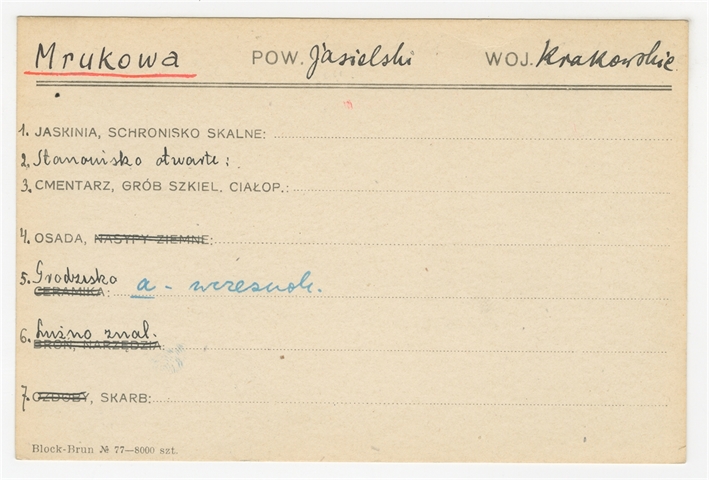 Mrukowa POW. Jasielski WOJ. Krakowskie
1. JASKINIA, SCHRONISKO SKALNE:
2. Stanowisko otwarte:
3. CMENTARZ, GRÓB SZKIEL. CIAŁOP.:
4. OSADA, NASYPY ZIEMNE:
5. Grodzisko a - wczesnok.
CERAMIKA:
6. Luźno znal.
BROŃ, NARZĘDZIA:
7. OZDOBY, SKARB:
Block-Brun № 77—8000 szt.